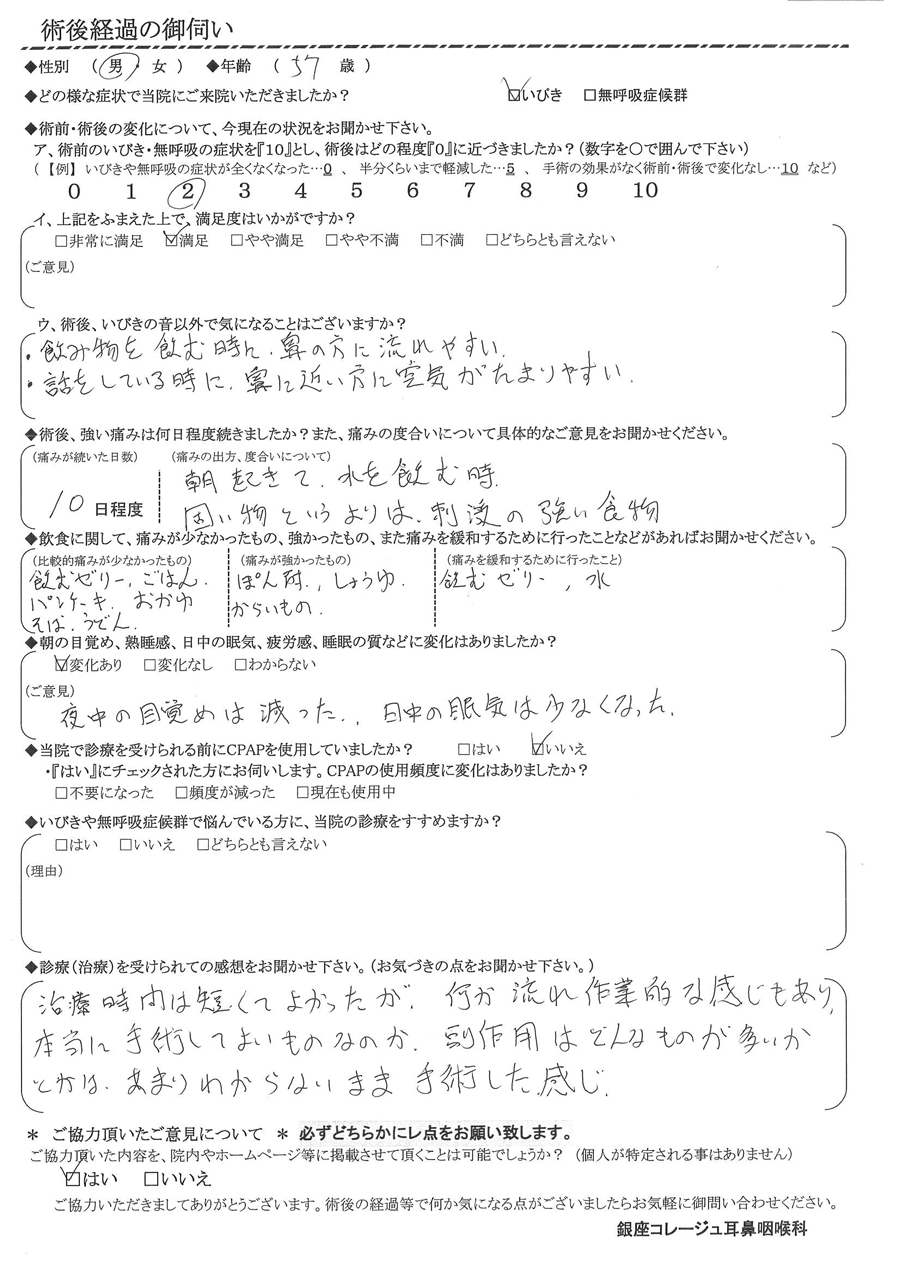 術後経過の御伺い
◆性別 （ 男 ・ 女 ） ◆年齢 （ 57 歳 ）
◆どの様な症状で当院にご来院いただきましたか？ ☑いびき □無呼吸症候群
◆術前・術後の変化について、今現在の状況をお聞かせ下さい。
ア、術前のいびき・無呼吸の症状を『10』とし、術後はどの程度『0』に近づきましたか？（数字を○で囲んで下さい）
（【例】 いびきや無呼吸の症状が全くなくなった…0 、 半分くらいまで軽減した…5 、 手術の効果がなく術前・術後で変化なし…10 など）
0 1 2 3 4 5 6 7 8 9 10
イ、上記をふまえた上で、満足度はいかがですか？
□非常に満足 ☑満足 □やや満足 □やや不満 □不満 □どちらとも言えない
（ご意見）
ウ、術後、いびきの音以外で気になることはございますか？
・飲み物を飲む時に、鼻の方に流れやすい。
・話をしている時に、鼻に近い方に空気がたまりやすい。
◆術後、強い痛みは何日程度続きましたか？また、痛みの度合いについて具体的なご意見をお聞かせください。
（痛みが続いた日数） （痛みの出方、度合いについて）
朝起きて、水を飲む時。
10 日程度 固い物というよりは、刺激の強い食物
◆飲食に関して、痛みが少なかったもの、強かったもの、また痛みを緩和するために行ったことなどがあればお聞かせください。
（比較的痛みが少なかったもの） （痛みが強かったもの） （痛みを緩和するために行ったこと）
飲むゼリー、ごはん、 ぽん酢、しょうゆ、 飲むゼリー、水
パンケーキ、おかゆ からいもの。
そば、うどん。
◆朝の目覚め、熟睡感、日中の眠気、疲労感、睡眠の質などに変化はありましたか？
☑変化あり □変化なし □わからない
（ご意見）
夜中の目覚めは減った。、日中の眠気は少なくなった。
◆当院で診療を受けられる前にCPAPを使用していましたか？ □はい ☑いいえ
・『はい』にチェックされた方にお伺いします。CPAPの使用頻度に変化はありましたか？
□不要になった □頻度が減った □現在も使用中
◆いびきや無呼吸症候群で悩んでいる方に、当院の診療をすすめますか？
□はい □いいえ □どちらとも言えない
（理由）
◆診療（治療）を受けられての感想をお聞かせ下さい。（お気づきの点をお聞かせ下さい。）
治療時間は短くてよかったが、何か流れ作業的な感じもあり、
本当に手術してよいものなのか、副作用はどんなものが多いか
とかは、あまりわからないまま手術した感じ。
＊ ご協力頂いたご意見について ＊ 必ずどちらかにレ点をお願い致します。
ご協力頂いた内容を、院内やホームページ等に掲載させて頂くことは可能でしょうか？（個人が特定される事はありません）
☑はい □いいえ
ご協力いただきましてありがとうございます。術後の経過等で何か気になる点がございましたらお気軽に御問い合わせください。
銀座コレージュ耳鼻咽喉科